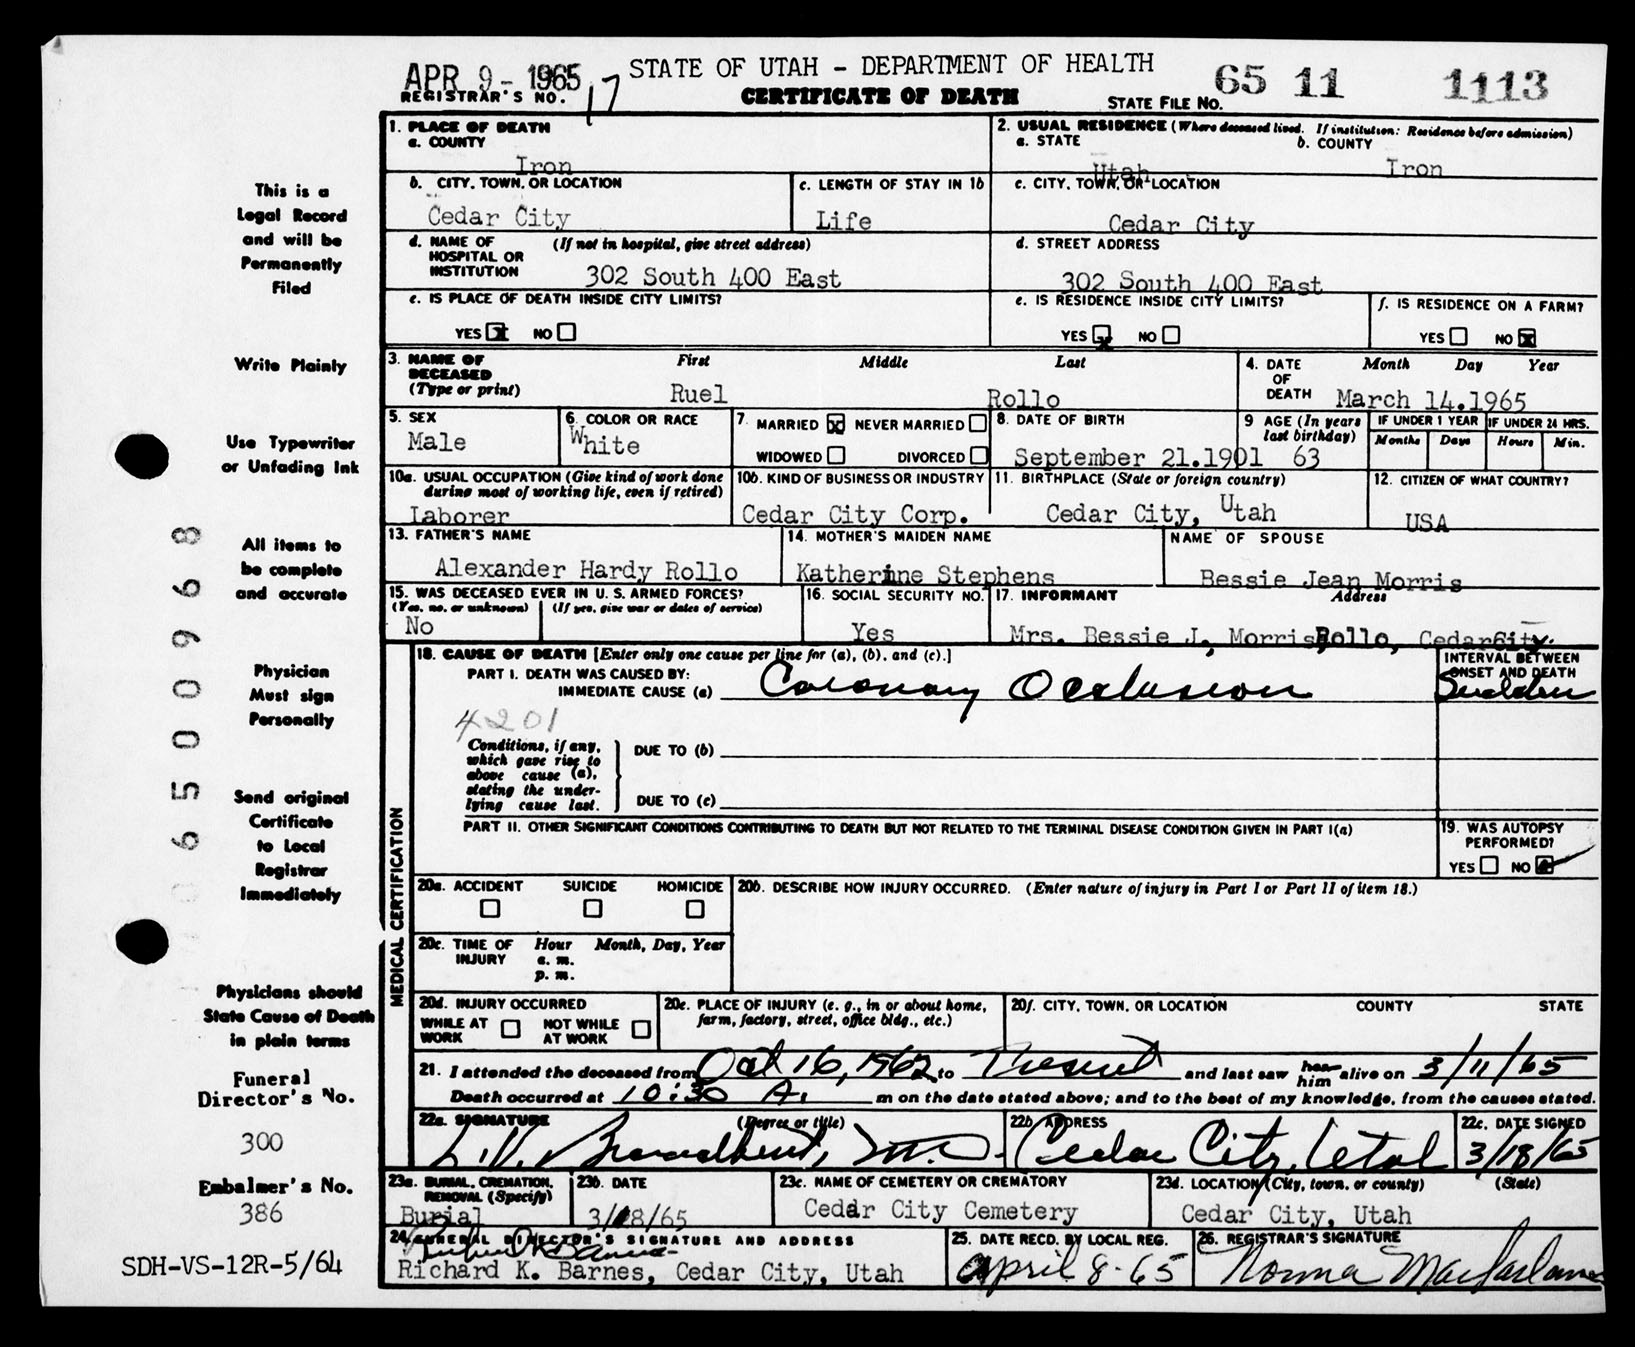 APR 9 - 1965
STATE OF UTAH - DEPARTMENT OF HEALTH
65 11 1113
REGISTRAR'S NO. 17
CERTIFICATE OF DEATH
STATE FILE NO.
1. PLACE OF DEATH
a. COUNTY
Iron
2. USUAL RESIDENCE (Where deceased lived. If institution: Residence before admission)
a. STATE b. COUNTY
Utah Iron
b. CITY, TOWN, OR LOCATION
Cedar City
c. LENGTH OF STAY IN 1b
Life
c. CITY, TOWN, OR LOCATION
Cedar City
d. NAME OF HOSPITAL OR INSTITUTION (If not in hospital, give street address)
302 South 400 East
d. STREET ADDRESS
302 South 400 East
e. IS PLACE OF DEATH INSIDE CITY LIMITS?
YES X NO
e. IS RESIDENCE INSIDE CITY LIMITS?
YES X NO
f. IS RESIDENCE ON A FARM?
YES NO X
3. NAME OF DECEASED (Type or print)
First Middle Last
Ruel Rollo
4. DATE OF DEATH Month Day Year
March 14.1965
5. SEX
Male
6. COLOR OR RACE
White
7. MARRIED X NEVER MARRIED
WIDOWED DIVORCED
8. DATE OF BIRTH
September 21.1901
9 AGE (In years last birthday)
63
IF UNDER 1 YEAR IF UNDER 24 HRS.
Months Days Hours Min.
10a. USUAL OCCUPATION (Give kind of work done during most of working life, even if retired)
Laborer
10b. KIND OF BUSINESS OR INDUSTRY
Cedar City Corp.
11. BIRTHPLACE (State or foreign country)
Cedar City, Utah
12. CITIZEN OF WHAT COUNTRY?
USA
13. FATHER'S NAME
Alexander Hardy Rollo
14. MOTHER'S MAIDEN NAME
Katherine Stephens
NAME OF SPOUSE
Bessie Jean Morris
15. WAS DECEASED EVER IN U. S. ARMED FORCES?
(Yes, no, or unknown) (If yes, give war or dates of service)
No
16. SOCIAL SECURITY NO.
Yes
17. INFORMANT Address
Mrs. Bessie J. Morris, Rollo, Cedar City.
MEDICAL CERTIFICATION
18. CAUSE OF DEATH [Enter only one cause per line for (a), (b), and (c).]
PART I. DEATH WAS CAUSED BY:
IMMEDIATE CAUSE (a) Coronary Occlusion
INTERVAL BETWEEN ONSET AND DEATH
Sudden
4201
Conditions, if any, which gave rise to above cause (a), stating the underlying cause last.
DUE TO (b)
DUE TO (c)
PART II. OTHER SIGNIFICANT CONDITIONS CONTRIBUTING TO DEATH BUT NOT RELATED TO THE TERMINAL DISEASE CONDITION GIVEN IN PART I(a)
19. WAS AUTOPSY PERFORMED?
YES NO
20a. ACCIDENT SUICIDE HOMICIDE
20b. DESCRIBE HOW INJURY OCCURRED. (Enter nature of injury in Part I or Part II of item 18.)
20c. TIME OF INJURY Hour Month, Day, Year
a. m.
p. m.
20d. INJURY OCCURRED
WHILE AT WORK NOT WHILE AT WORK
20e. PLACE OF INJURY (e. g., in or about home, farm, factory, street, office bldg., etc.)
20f. CITY, TOWN, OR LOCATION COUNTY STATE
21. I attended the deceased from Oct 16, 1962 to Present and last saw her him alive on 3/11/65
Death occurred at 10:30 A. m on the date stated above; and to the best of my knowledge, from the causes stated.
22a. SIGNATURE (Degree or title)
L. V. Broadbent, M.D.
22b. ADDRESS
Cedar City, Utah
22c. DATE SIGNED
3/18/65
23a. BURIAL, CREMATION, REMOVAL (Specify)
Burial
23b. DATE
3/18/65
23c. NAME OF CEMETERY OR CREMATORY
Cedar City Cemetery
23d. LOCATION (City, town, or county) (State)
Cedar City, Utah
24. FUNERAL DIRECTOR'S SIGNATURE AND ADDRESS
Richard K Barnes
Richard K. Barnes, Cedar City, Utah
25. DATE RECD. BY LOCAL REG.
April 8-65
26. REGISTRAR'S SIGNATURE
Norma Macfarlane
This is a
Legal Record
and will be
Permanently
Filed
Write Plainly
Use Typewriter
or Unfading Ink
All items to
be complete
and accurate
Physician
Must sign
Personally
Send original
Certificate
to Local
Registrar
Immediately
Physicians should
State Cause of Death
in plain terms
Funeral
Director's No.
300
Embalmer's No.
386
SDH-VS-12R-5/64
65 00968